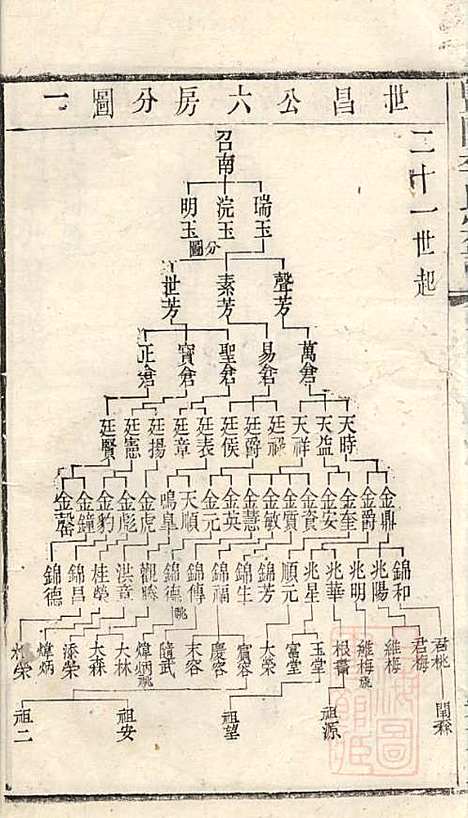 世昌公六房分圖一
二十一世起
召南
瑞玉 浣玉 明玉
分圖
聲芳 素芳 世芳
萬倉 易倉 聖倉 寶倉 正倉
天時 天益 天祥 廷祿 廷爵 廷侯 廷表 廷章 廷揚 廷憲 廷賢
金鼎 金爵 金奎 金安 金資 金質 金敏 金慧 金英 金元 天順 鳴皇 金虎 金彪 金豹 金鐘 金罄
錦和 兆陽 兆明 兆華 兆星 順元 錦芳 錦生 錦福 錦傳 錦德 觀勝 洪章 桂榮 錦昌 錦德
祧
君桃 君梅 維梅 維梅 祧 根書 玉堂 富堂 大榮 賓容 慶容 末容 隨武 煒炳 祧 大林 大森 添榮 煒炳
開霖 祖源 祖望 祖安 祖二